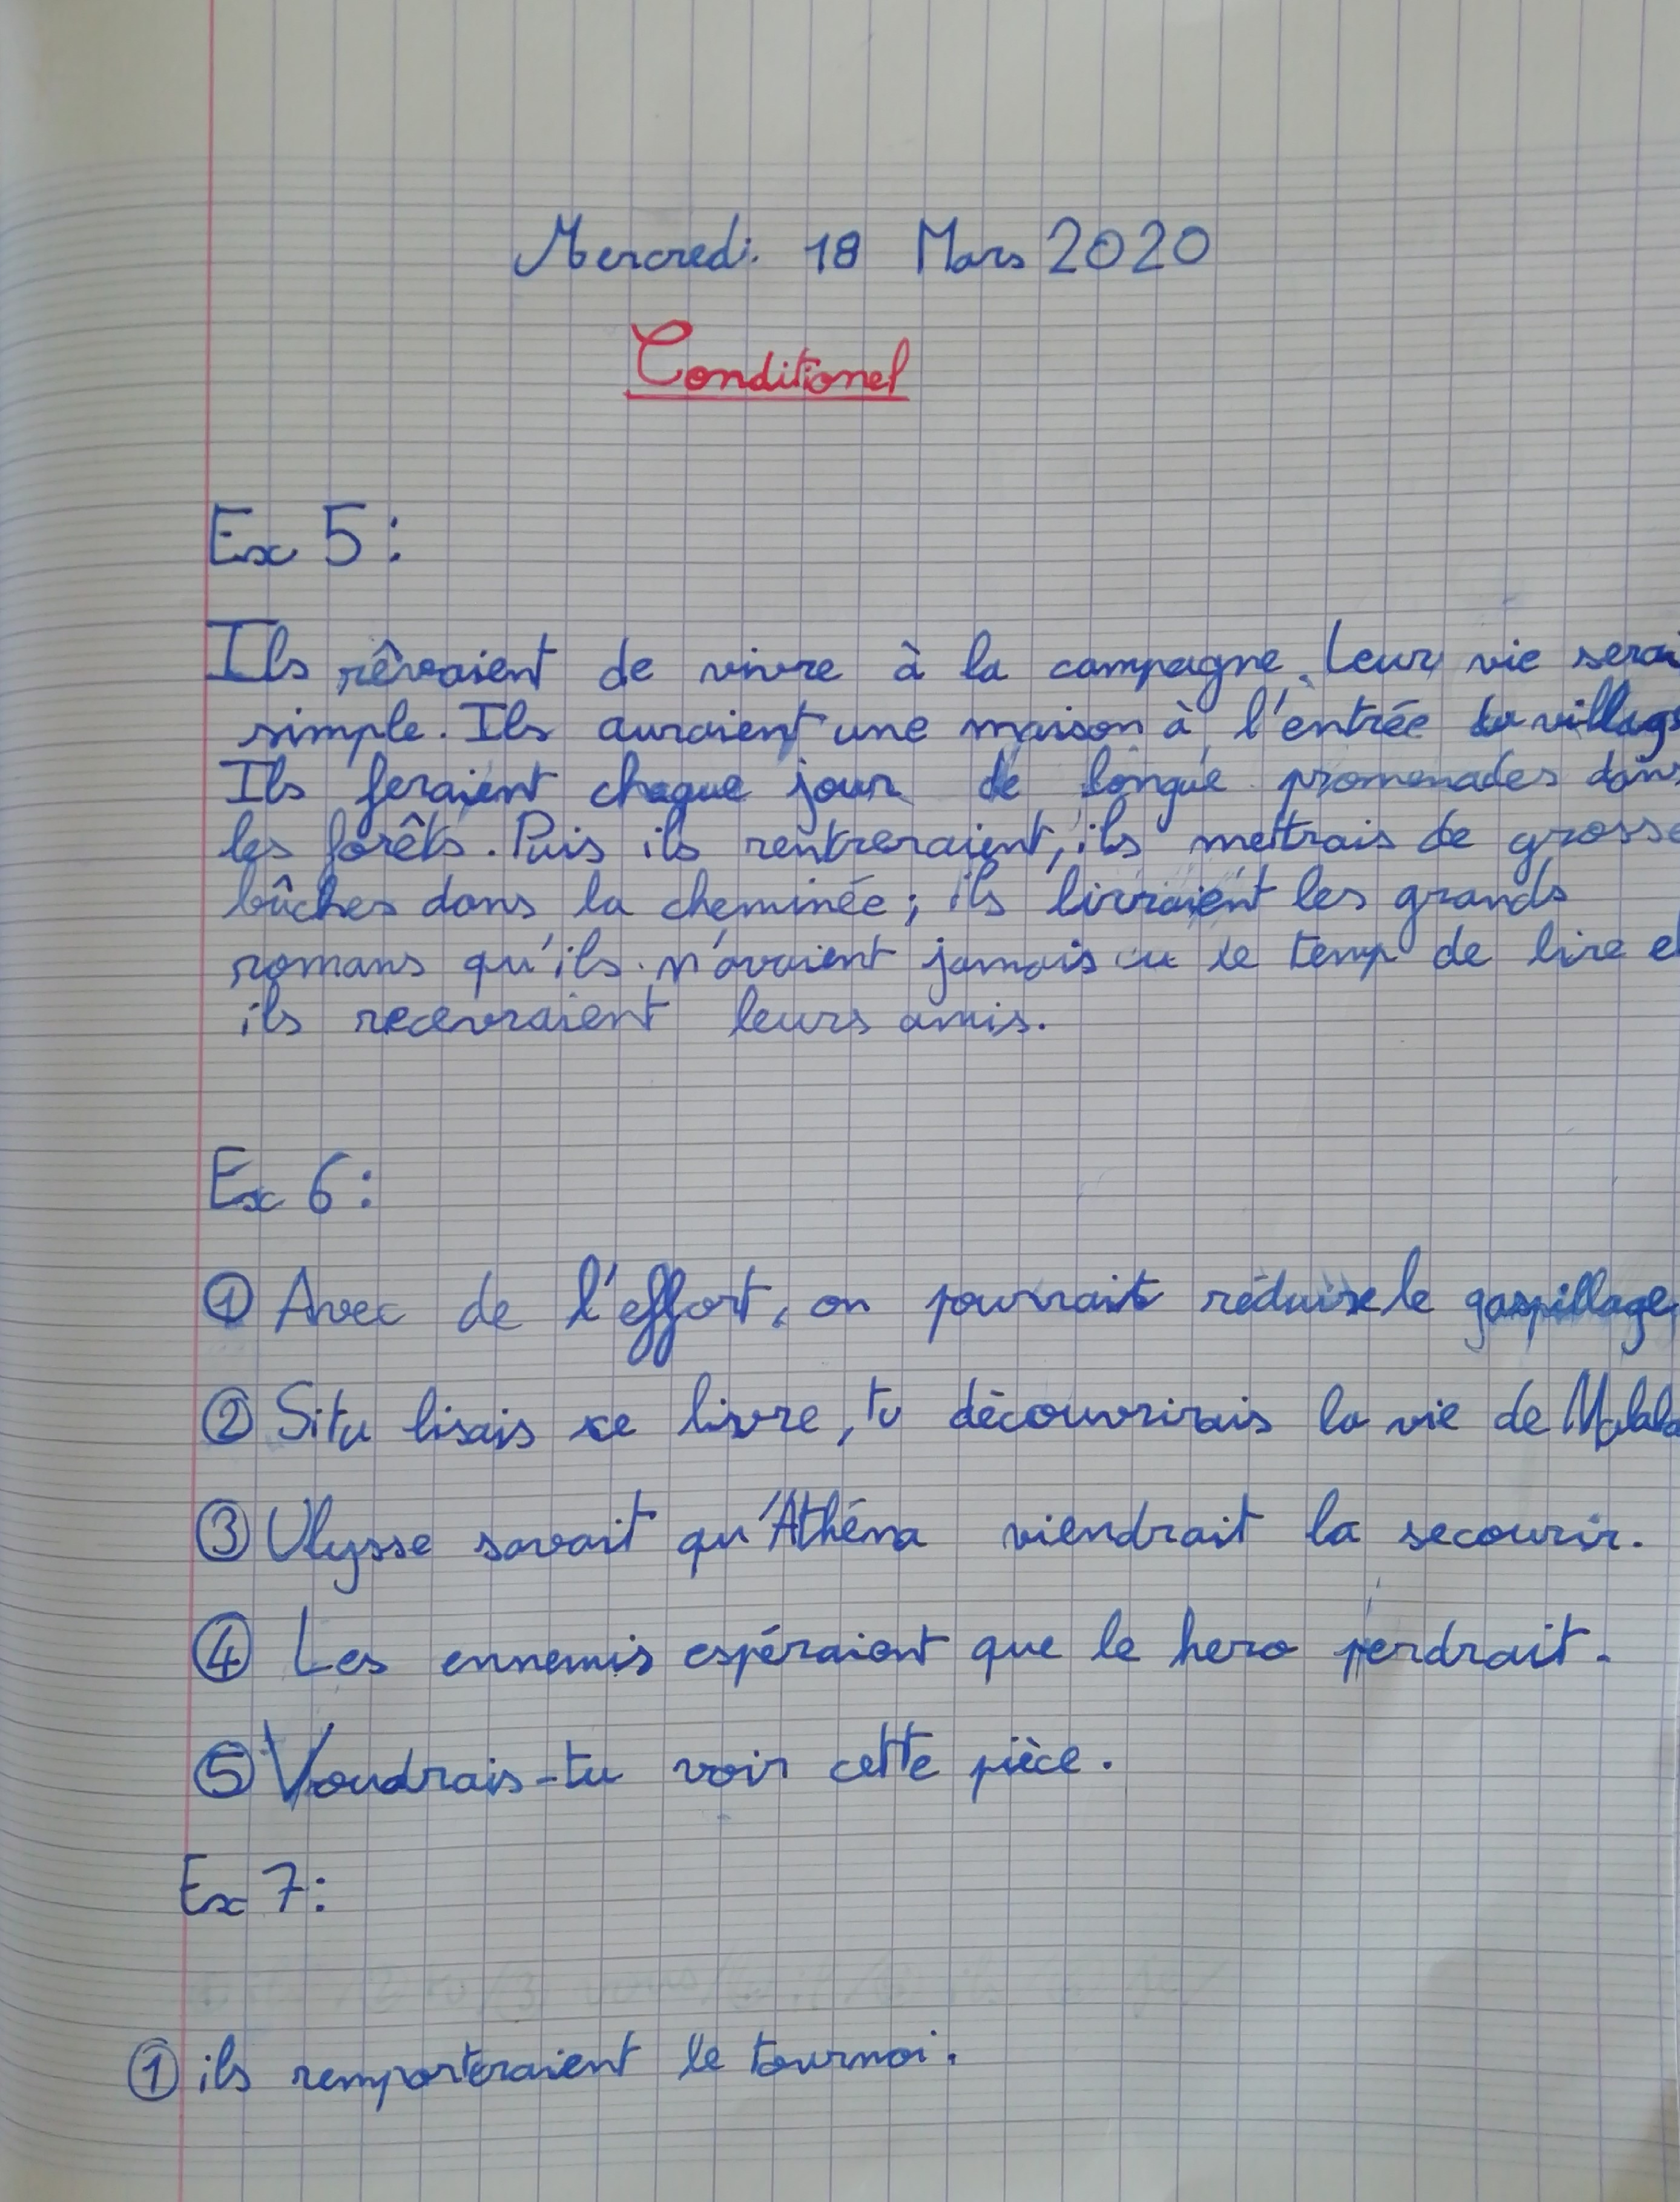 Mercredi 18 Mars 2020
Conditionel
Ex 5:
Ils rêvaient de vivre à la campagne. Leur vie serai
simple. Ils auraient une maison à l'entrée du village
Ils feraient chaque jour de longue promenades dans
les forêts. Puis ils rentreraient, ils mettrais de grosse
bûches dans la cheminée; ils liraient les grands
romans qu'ils n'avaient jamais eu le temp de lire et
ils recevraient leurs amis.
Ex 6:
① Avec de l'effort, on pourrait réduire le gaspillage
② Si tu lisais ce livre, tu découvrirais la vie de Malala
③ Ulysse savait qu'Athéna viendrait la secourir.
④ Les ennemis espéraient que le hero perdrait.
⑤ Voudrais-tu voir cette pièce.
Ex 7:
① ils remporteraient le tournoi.